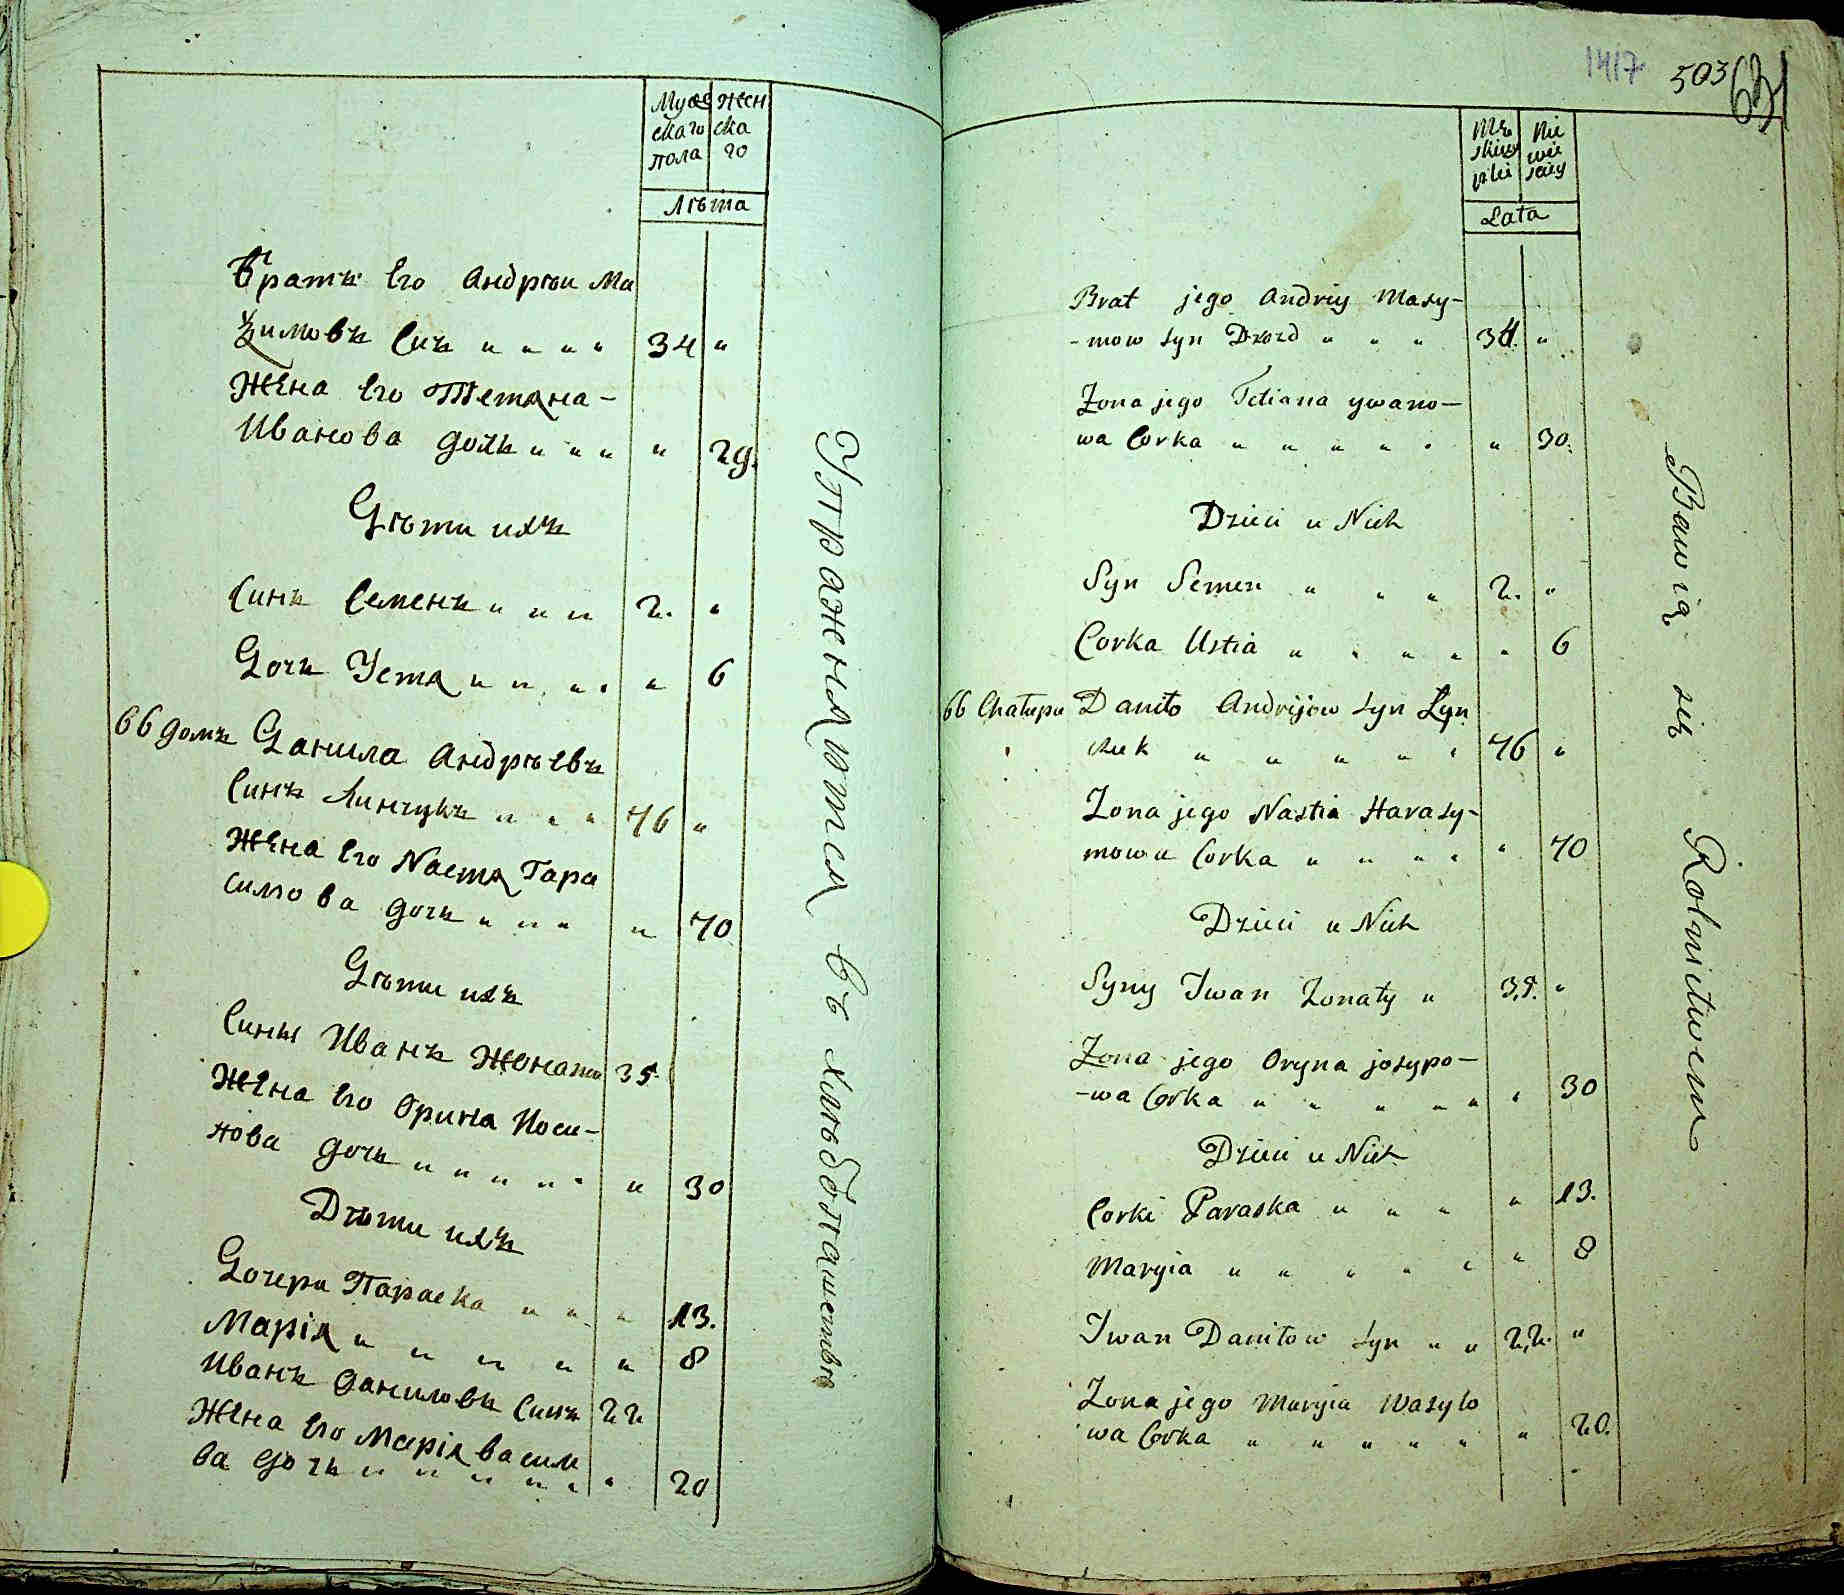 Муже Жен
скаго ска
пола го
Лѣта
Братъ Его Андрѣи Ма
ѯимовъ Синъ " " " " 34 "
Жена Его Тетяна-
Иванова дочь " " " " 29.
Дѣти ихъ
Синъ Семенъ " " " 2. "
Дочь Устя " " " " " 6
66 домъ Данила Андрѣевъ
Синъ Линчукъ " " " 76 "
Жена Его Настя Гара
симова дочь " " " " 70
Дѣти ихъ
Сины Иванъ Жонати 35.
Жена Его Орина Иоси-
пова дочь " " " " " " 30
Дѣти ихъ
Дочери Параска " " " 13.
Марія " " " " " 8
Иванъ Даниловъ Синъ 22
Жена Его Марія Васили
ва дочь " " " " " " 20
Упражняются въ хлѣбопашествѣ
1417 503 631
Mę Nie
skiey wie
płci sciey
Lata
Brat jego Andriy Masy-
-mow Syn Drozd " " " 34. "
Zona jego Tetiana ywano-
wa Corka " " " " " " 30.
Dzieci u Nich
Syn Semen " " " 2. "
Corka Ustia " " " " " 6
66 Chałupa Daniło Andrijow Syn Lyn
czuk " " " " " 76 "
Zona jego Nastia Harasy-
mowa Corka " " " " " 70
Dzieci u Nich
Syny Iwan Zonaty " 35. "
Zona jego Oryna josypo-
-wa Corka " " " " " " 30
Dzieci u Nich
Corki Paraska " " " " 13.
Maryia " " " " " " 8
Iwan Daniłow Syn " " 22. "
Zona jego Maryia Wasylo
wa Corka " " " " " " 20.
Bawią się Rolnictwem